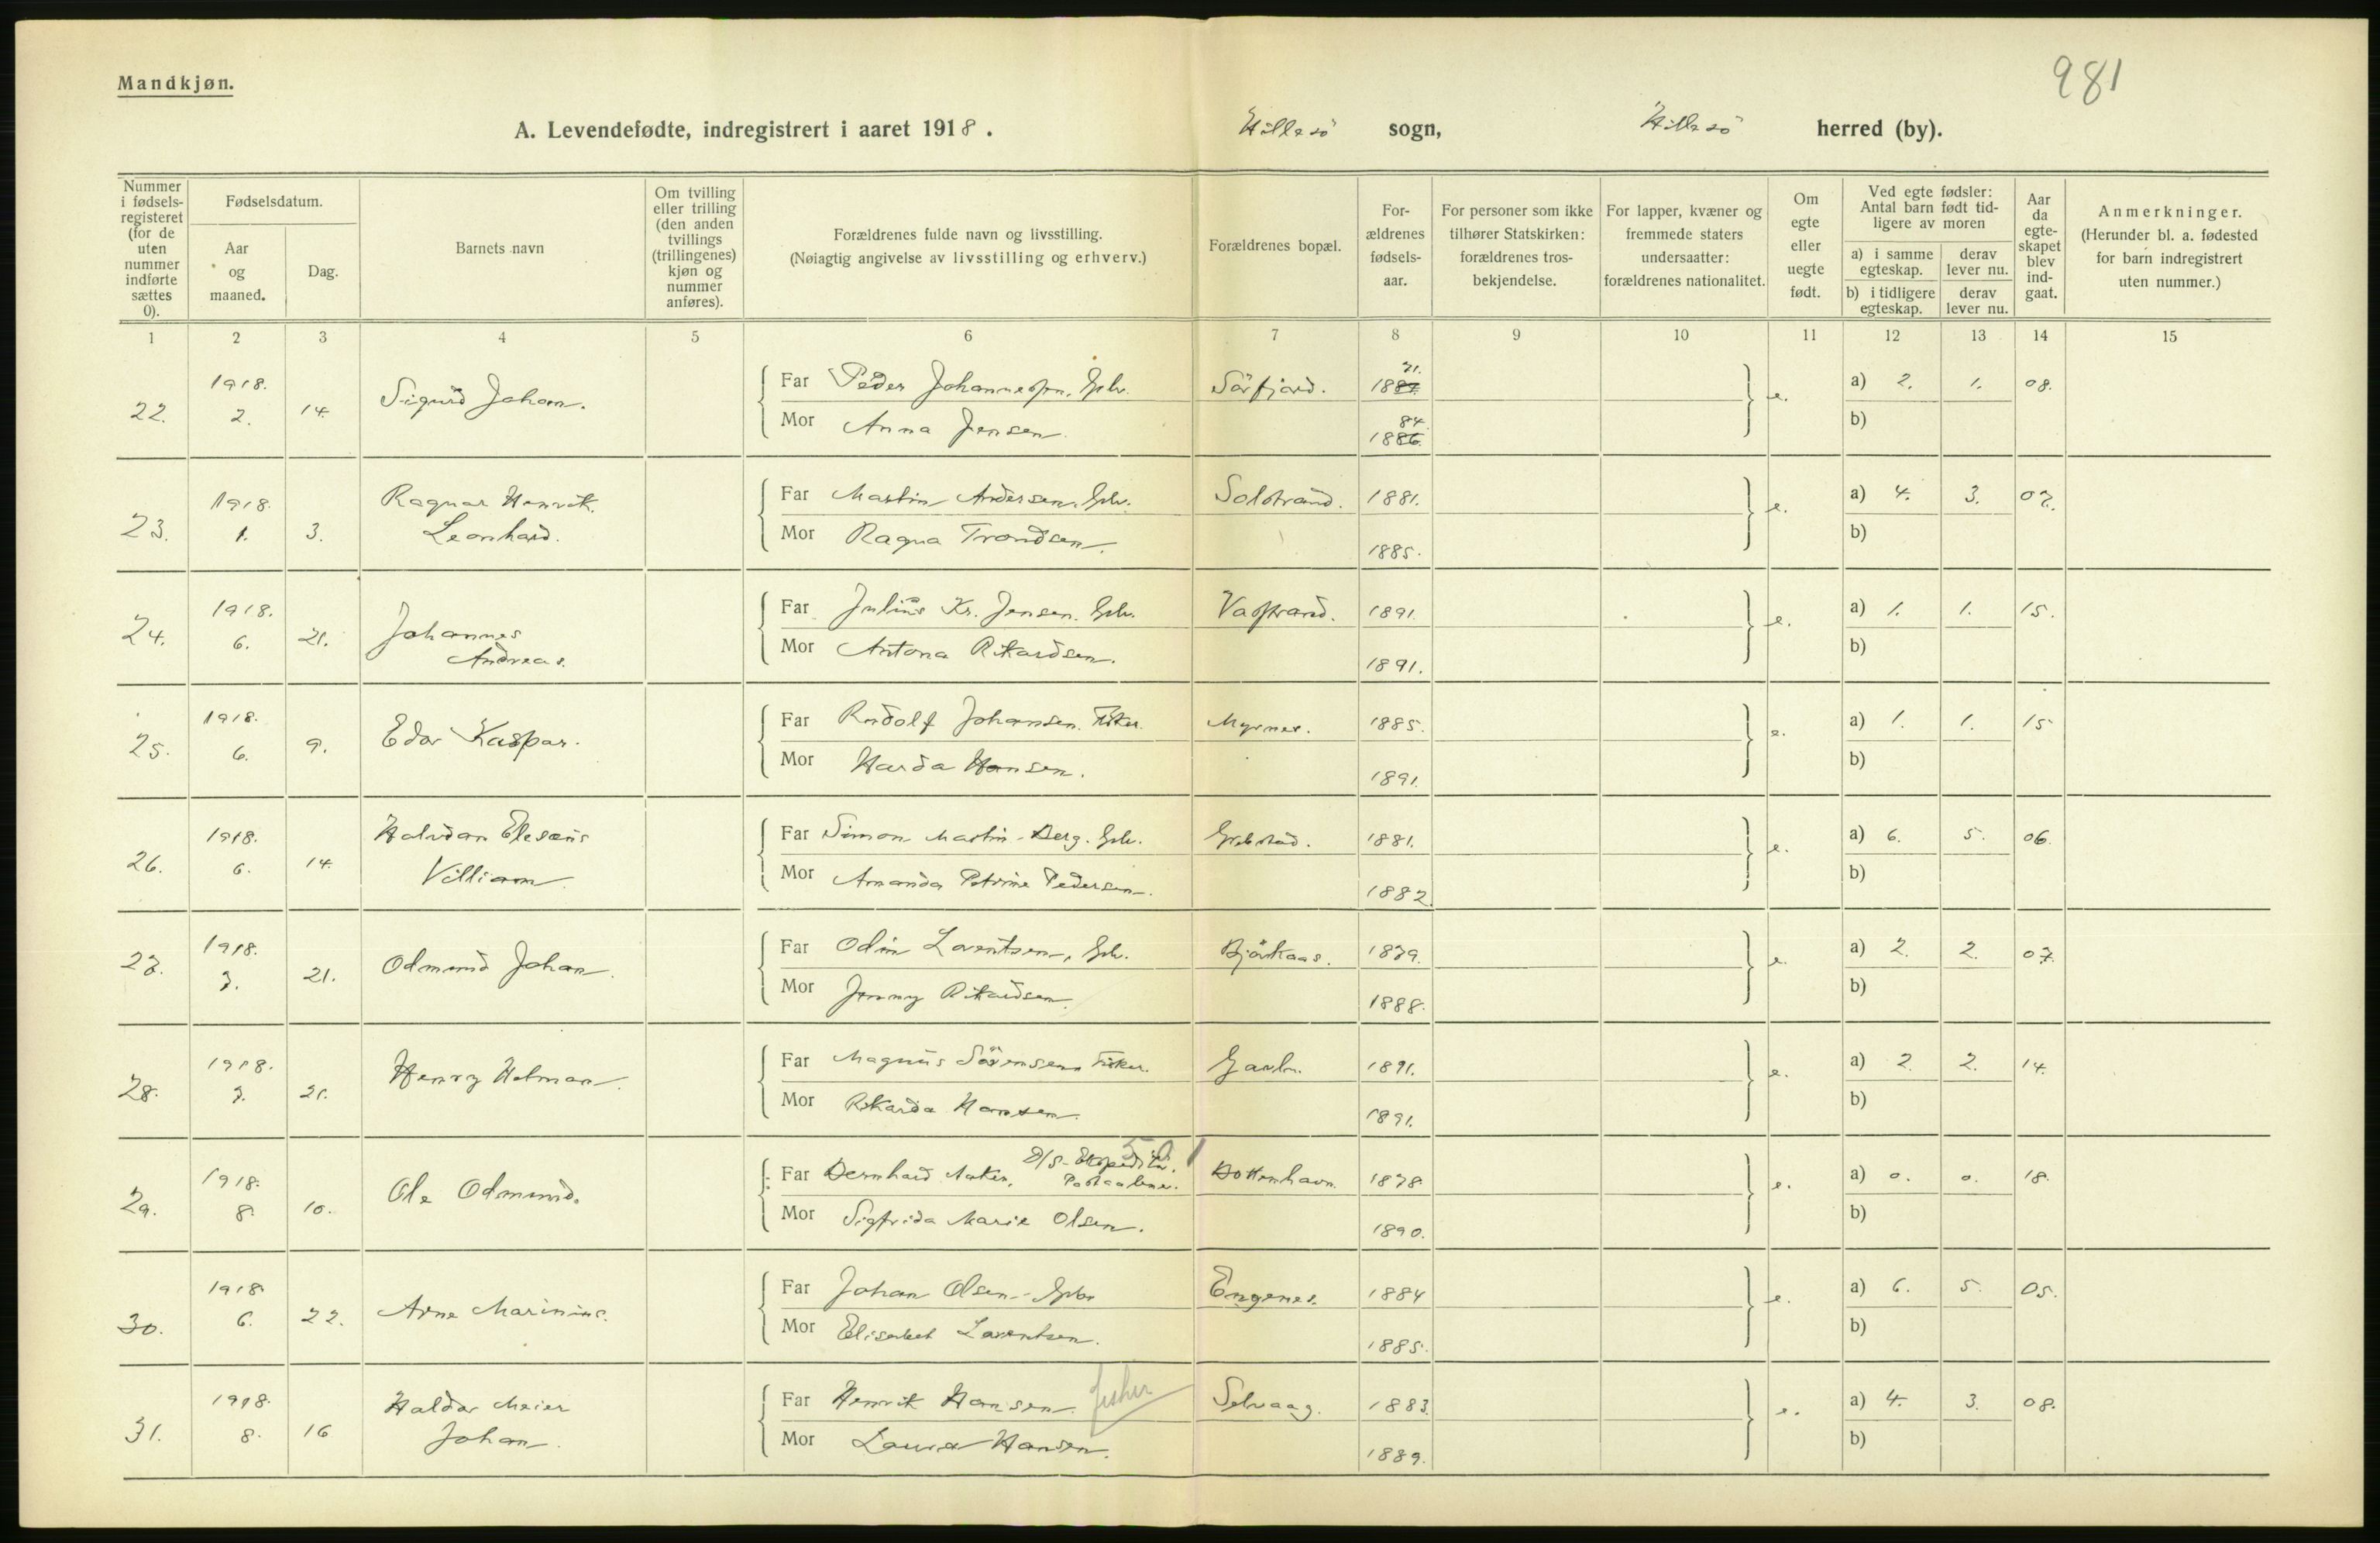 981
Mandkjøn.
A. Levendefødte, indregistrert i aaret 1918. Hillesö sogn, Hillesö herred (by).
Nummer i fødsels-registeret (for de uten nummer indførte sættes 0).
Fødselsdatum.
Aar og maaned.
Dag.
Barnets navn
Om tvilling eller trilling (den anden tvillings (trillingenes) kjøn og nummer anføres).
Forældrenes fulde navn og livsstilling.
(Nøiagtig angivelse av livsstilling og erhverv.)
Forældrenes bopæl.
For-ældrenes fødsels-aar.
For personer som ikke tilhører Statskirken: forældrenes tros-bekjendelse.
For lapper, kvæner og fremmede staters undersaatter: forældrenes nationalitet.
Om egte eller uegte født.
Ved egte fødsler: Antal barn født tid-ligere av moren
a) i samme egteskap. derav lever nu.
b) i tidligere egteskap. derav lever nu.
Aar da egte-skapet blev ind-gaat.
Anmerkninger.
(Herunder bl. a. fødested for barn indregistrert uten nummer.)
1 2 3 4 5 6 7 8 9 10 11 12 13 14 15
22. 1918. 2. 14. Sigurd Johan.
Far Peder Johannessen. Gbr. Sörfjord. 1887. 21. e. a) 2. 1. 08.
Mor Anna Jensen. 1886. 84. b)
23. 1918. 1. 3. Ragnar Henrik. Leonhard.
Far Martin Andersen. Gbr. Solstrand. 1881. e. a) 4. 3. 07.
Mor Ragna Trondsen. 1885. b)
24. 1918. 6. 21. Johannes Andreas.
Far Julius Kr. Jensen. Gbr. Vasstrand. 1891. e. a) 1. 1. 15.
Mor Antona Rikardsen. 1891. b)
25. 1918. 6. 9. Edor Kaspar.
Far Rudolf Johansen. Fisker. Myrnes. 1885. e. a) 1. 1. 15
Mor Harda Hansen. 1891. b)
26. 1918. 6. 14. Halvdan Elesæus Villiam.
Far Simon Martin Berg. Gbr. 1881. e. a) 6. 5. 06.
Mor Amanda Petrine Pedersen. 1882. b)
27. 1918. 7. 21. Odmund Johan.
Far Odin Lorentsen, Gbr. Björkaas. 1879. e. a) 2. 2. 07.
Mor Jenny Rikardsen. 1888. b)
28. 1918. 7. 21. Henry Helman.
Far Magnus Sörensen Fisker. 1891. e. a) 2. 2. 14.
Mor Rikarda Hansen. 1891. b)
501
29. 1918. 8. 10. Ole Odmund.
D/S-Ekspeditör.
Far Bernhard Aaker, Postaabner. 1878. e. a) 0. 0. 18.
Mor Sigfrida Marie Olsen. 1890. b)
30. 1918. 6. 22. Arne Marinius.
Far Johan Olsen Gbr Engenes. 1884 e. a) 6. 5. 05.
Mor Elisabet Lorentsen. 1885. b)
31. 1918. 8. 16 Haldor Meier Johan.
Far Henrik Hansen. fisker Selvaag. 1883. e. a) 4. 3. 08.
Mor Laura Hansen. 1889. b)